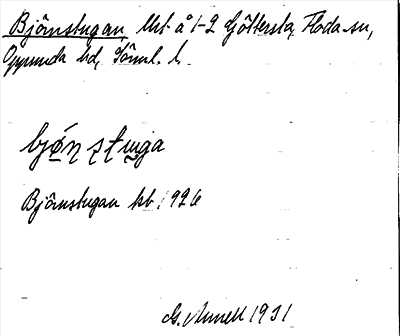 Björnstugan, lht å 1-2 Göttersta, Floda sn,
Oppunda hd, Söml. l.
bjǿn ștuga
Björnstugan kb 1926
G. Annell 1931